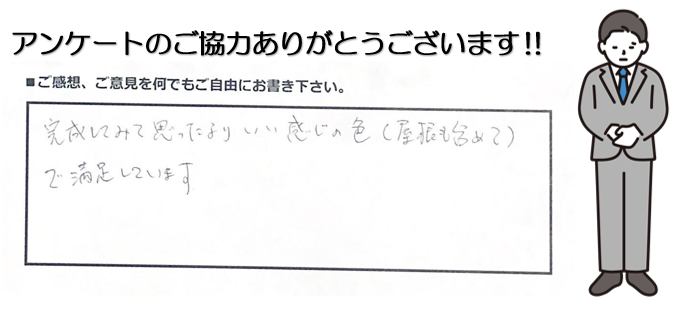 アンケートのご協力ありがとうございます!!
■ご感想、ご意見を何でもご自由にお書き下さい。
完成してみて思ったよりいい感じの色(屋根も含めて)
で満足しています